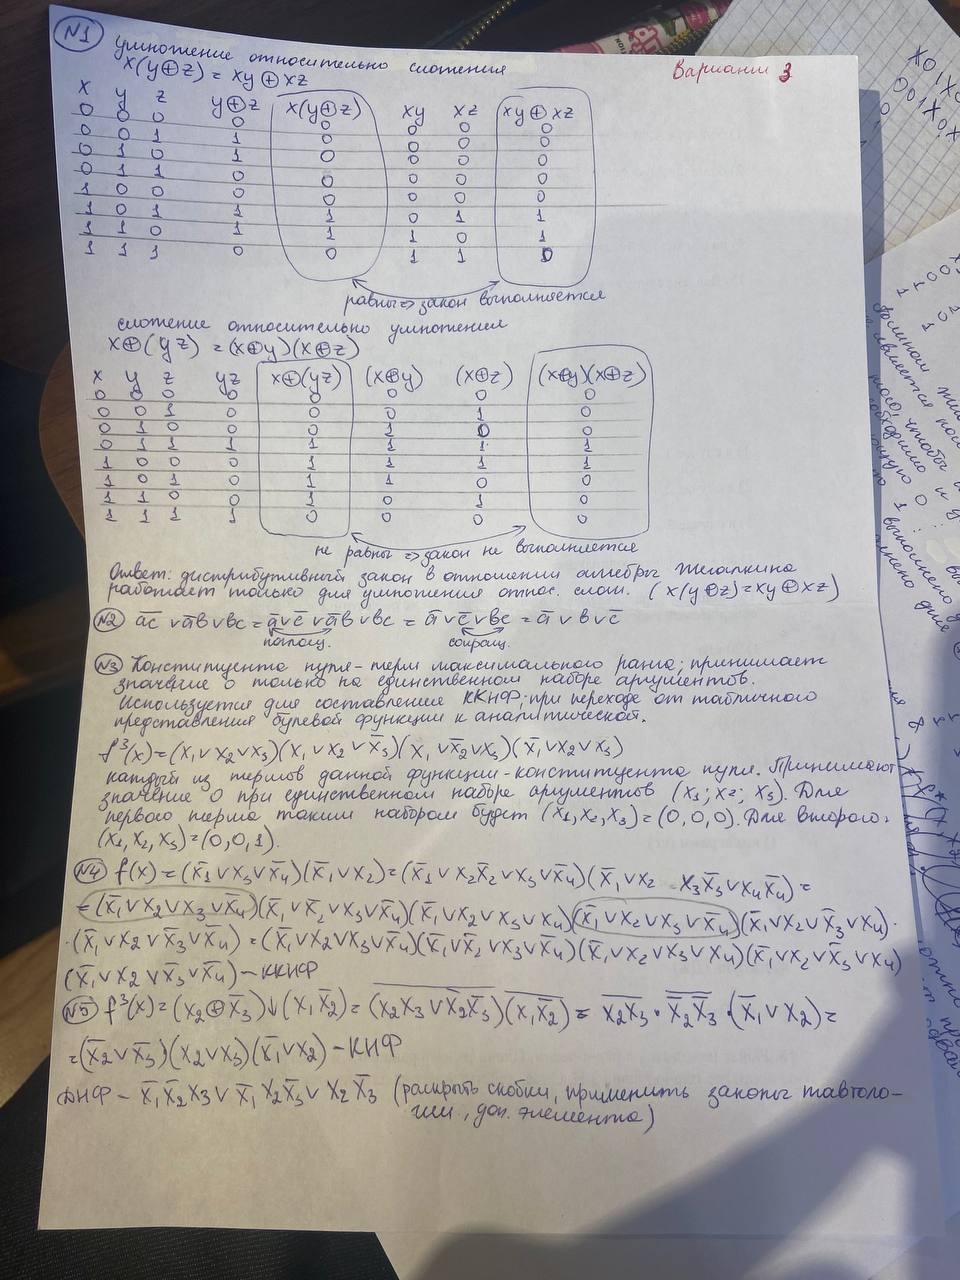 №1 умножение относительно сложения
Вариант 3
x(y⊕z) = xy ⊕ xz
x y z y⊕z x(y⊕z) xy xz xy⊕xz
0 0 0 0 0 0 0 0
0 0 1 1 0 0 0 0
0 1 0 1 0 0 0 0
0 1 1 0 0 0 0 0
1 0 0 0 0 0 0 0
1 0 1 1 1 0 1 1
1 1 0 1 1 1 0 1
1 1 1 0 0 1 1 0
равны => закон выполняется
сложение относительно умножения
x⊕(yz) = (x⊕y)(x⊕z)
x y z yz x⊕(yz) (x⊕y) (x⊕z) (x⊕y)(x⊕z)
0 0 0 0 0 0 0 0
0 0 1 0 0 0 1 0
0 1 0 0 0 1 0 0
0 1 1 1 1 1 1 1
1 0 0 0 1 1 1 1
1 0 1 0 1 1 0 0
1 1 0 0 1 0 1 0
1 1 1 1 0 0 0 0
не равны => закон не выполняется
Ответ: дистрибутивный закон в отношении алгебры Жегалкина
работает только для умножения относ. слож. (x(y⊕z)=xy⊕xz)
№2 a̅c̅ ∨ a̅b ∨ bc = a̅ ∨ c̅ ∨ a̅b ∨ bc = a̅ ∨ c̅ ∨ bc = a̅ ∨ b ∨ c̅
поглощ. сокращ.
№3 Конституента нуля - терм максимального ранга; принимает
значение 0 только на единственном наборе аргументов.
Используется для составления ККНФ; при переходе от табличного
представления булевой функции к аналитической.
f³(x)=(x₁∨x₂∨x₃)(x₁∨x₂∨x̅₃)(x₁∨x̅₂∨x₃)(x̅₁∨x₂∨x₃)
каждый из термов данной функции - конституента нуля. Принимают
значение 0 при единственном наборе аргументов (x₁; x₂; x₃). Для
первого терма таким набором будет (x₁,x₂,x₃)=(0,0,0). Для второго:
(x₁,x₂,x₃)=(0,0,1).
№4 f(x)=(x̅₁∨x₃∨x̅₄)(x̅₁∨x₂)=(x̅₁∨x₂x̅₂∨x₃∨x̅₄)(x̅₁∨x₂ x₃x̅₃∨x₄x̅₄)=
=(x̅₁∨x₂∨x₃∨x̅₄)(x̅₁∨x̅₂∨x₃∨x̅₄)(x̅₁∨x₂∨x₃∨x₄)(x̅₁∨x₂∨x₃∨x̅₄)(x̅₁∨x₂∨x̅₃∨x₄)·
·(x̅₁∨x₂∨x̅₃∨x̅₄)=(x̅₁∨x₂∨x₃∨x̅₄)(x̅₁∨x̅₂∨x₃∨x̅₄)(x̅₁∨x₂∨x₃∨x₄)(x̅₁∨x₂∨x̅₃∨x₄)
(x̅₁∨x₂∨x̅₃∨x̅₄) - ККНФ
№5 f³(x)=(x₂⊕x̅₃)↓(x₁x̅₂)= (x₂x₃∨x̅₂x̅₃) (x₁x̅₂) = x₂x₃ · x̅₂x̅₃ · (x̅₁∨x₂)=
=(x̅₂∨x̅₃)(x₂∨x₃)(x̅₁∨x₂) - КНФ
ДНФ - x̅₁x̅₂x₃ ∨ x̅₁x₂x̅₃ ∨ x₂x̅₃ (раскрыть скобки, применить законы тавтоло-
гии, доп. элемента)